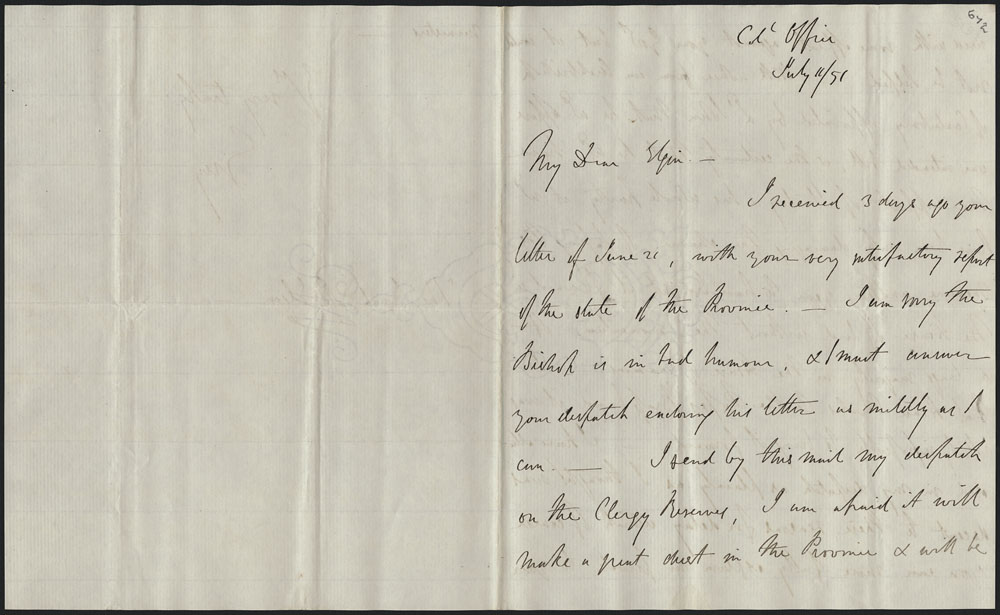 642
Col¹ Office
July 11/51
My Dear Elgin. —
I received 3 days ago your
letter of June 21, with your very satisfactory report
of the state of the Province. — I am sorry the
Bishop is in bad humour, & I must answer
your despatch enclosing his letter as mildly as I
can. — I send by this mail my despatch
on the Clergy Reserves, I am afraid it will
make a great in the Province & will be